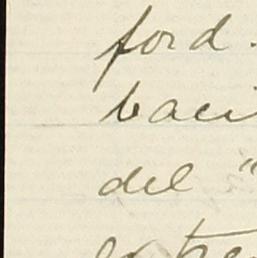 ford.
baci
del "